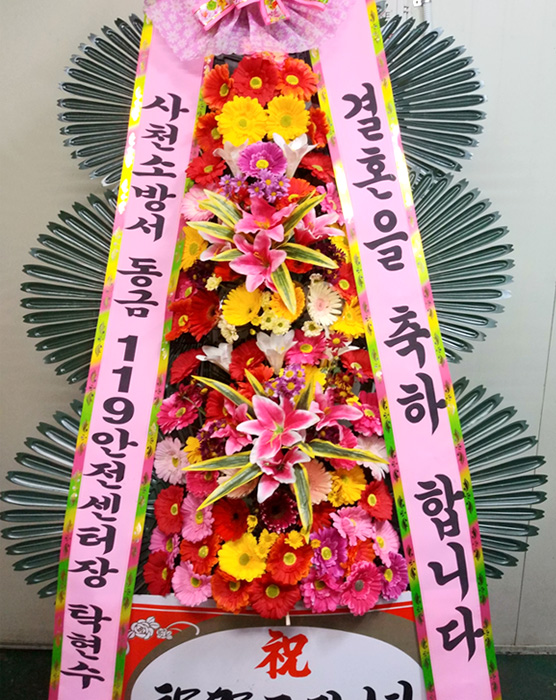 사천소방서 동금 119안전센터장 탁현수
결혼을 축하 합니다
祝